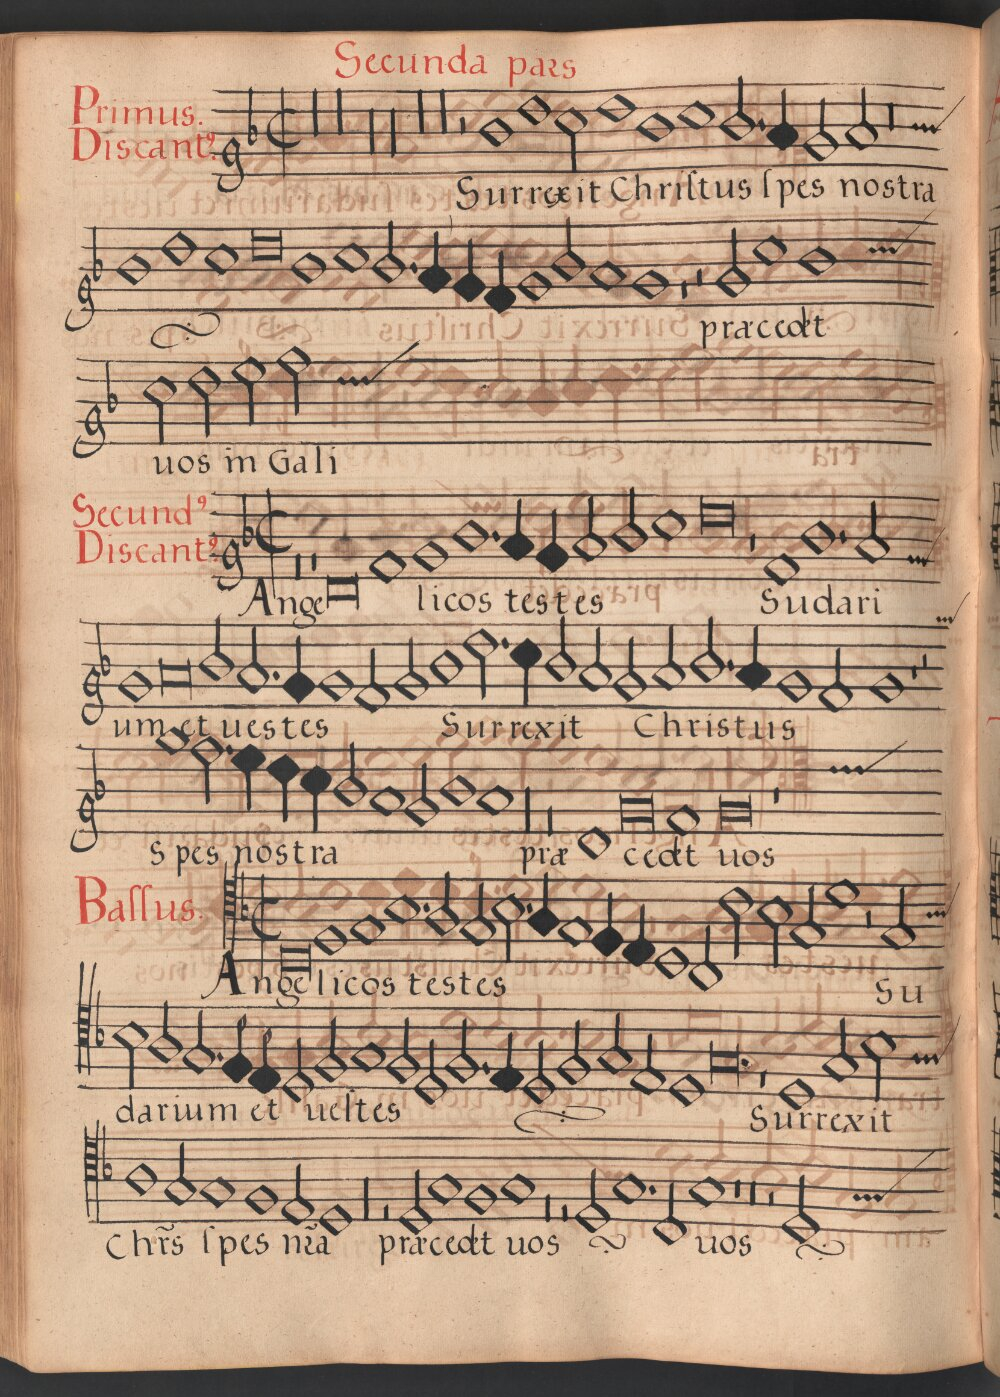 Secunda pars
Primus.
Discantꝰ.
Surrexit Chriſtus ſpes nostra
præcedet
uos in Gali
Secundꝰ
Discantꝰ.
Angelicos testes Sudari
um et uestes Surrexit Christus
Spes nostra præ cedet uos
Baſſus.
Angelicos testes Su
darium et ueſtes Surrexit
Chr̃s ſpes nr̃a præcedet uos uos